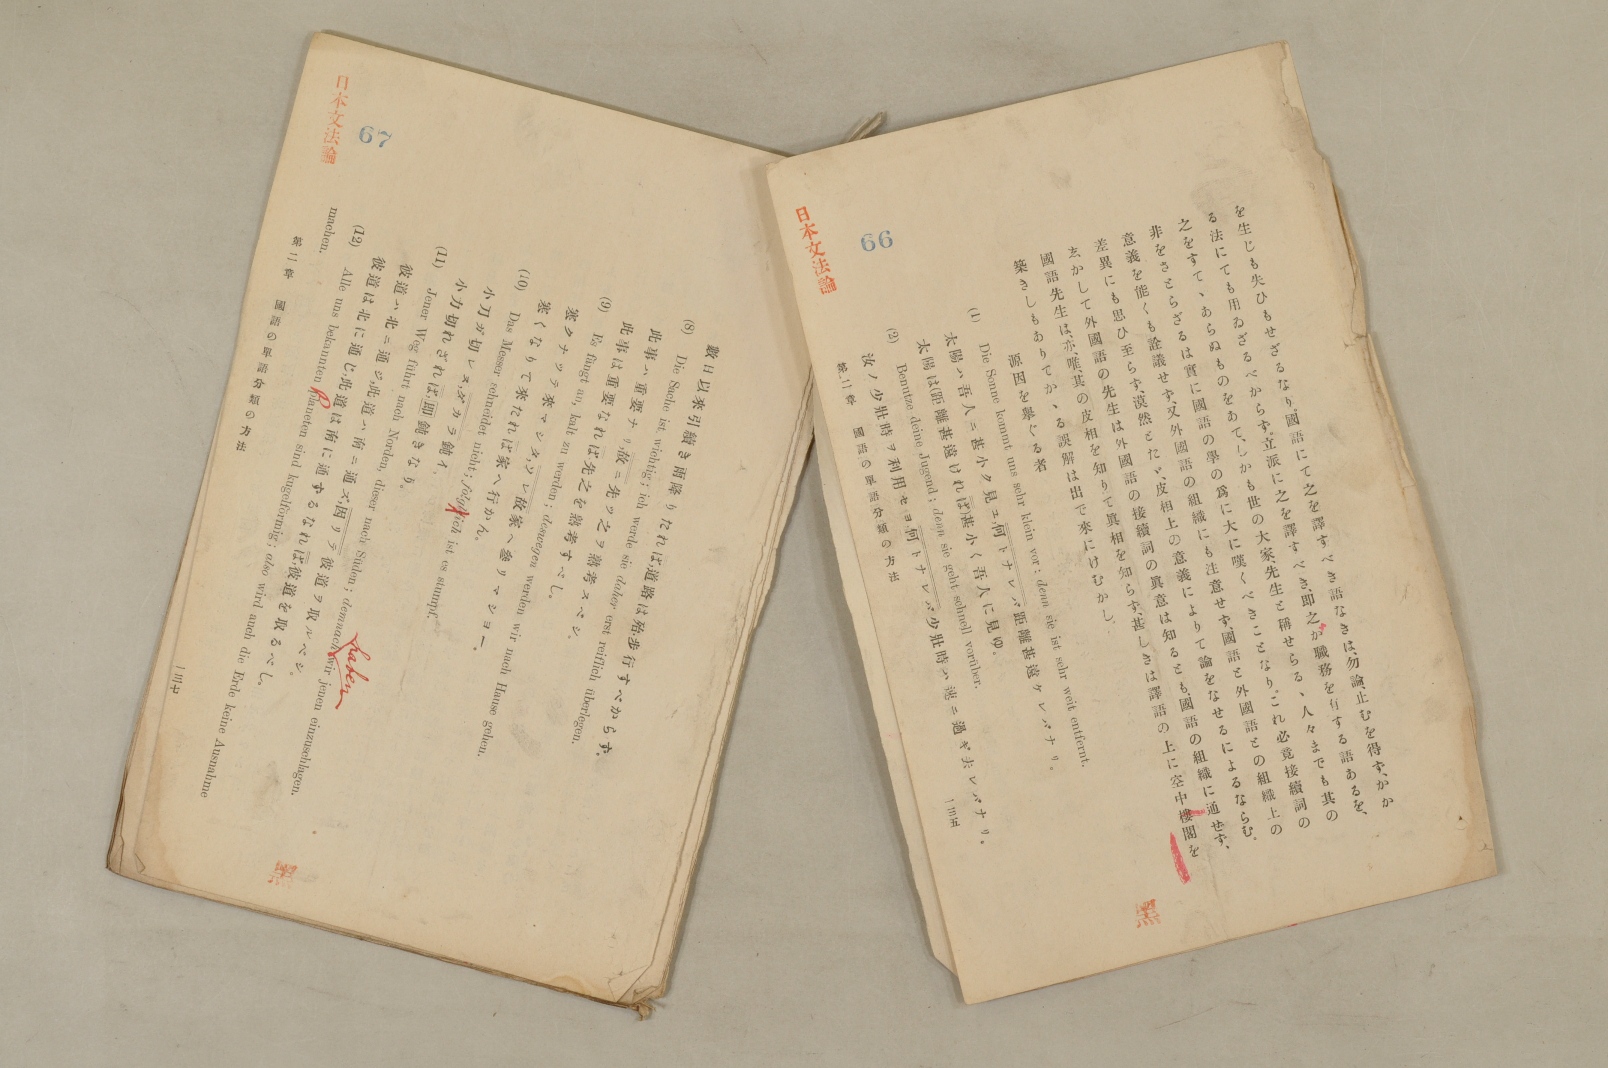 日本文法論
66
を生じも失ひもせざるなり、國語にて之を譯すべき語なきは、勿論止むを得ず、かか
る法にても用ゐざるべからず。立派に之を譯すべき、即之が職務を有する語あるを、
之をすて、あらぬものをあて、しかも世の大家先生と稱せらるゝ人々までも其の
非をさとらざるは實に國語の學の爲に大に嘆くべきことなり。これ必竟接續詞の
意義を能くも詮議せず、又外國語の組織にも注意せず、國語と外國語との組織上の
差異にも思ひ至らず、漠然とたゞ皮相上の意義によりて論をなせるによるならむ。
ゑかして外國語の先生は外國語の接續詞の眞意は知るとも、國語の組織に通せず、
國語先生は、亦、唯、其の皮相を知りて眞相を知らず、甚しきは譯語の上に空中樓閣を
築きしもありてかゝる誤解は出で來にけむかし。
原因を擧ぐる者
(1) Die Sonne kommt uns sehr klein vor: denn sie ist sehr weit entfernt.
太陽ハ吾人ニ甚小ク見ユ、何トナレバ距離甚遠ケレバナリ。
太陽は距離甚遠ければ甚小く吾人に見ゆ。
(2) Benutze deine Jugend; denn sie geht schnell vorüber.
汝ノ少壯時ヲ利用セヨ何トナレバ少壯時ハ速ニ過ギ去レバナリ。
第二章 國語の單語分類の方法
一三五
黑
日本文法論
67
數日以來引續き雨降りたれば、道路は殆步行すべからず。
(8) Die Sache ist wichtig; ich werde sie daher erst reiflich überlegen.
此事ハ重要ナリ、故ニ先ヅ之ヲ熟考スベシ。
此事は重要なれば先之を熟考すべし。
(9) Es fängt an, kalt zu werden; deswegen werden wir nach Hause gehen.
寒クナツテ來マシタ、ソレ故家ヘ參リマショー。
寒くなりて來たれば家へ行かん。
(10) Das Messer schneidet nicht; folglich ist es stumpf.
小刀ガ切レヌ、ダカラ鈍イ。
小刀切れざれば、即鈍きなり。
(11) Jener Weg führt nach Norden, dieser nach Süden; demnach haben wir jenen einzuschlagen.
彼道ハ北ニ通ジ、此道ハ南ニ通ズ、因リテ彼道ヲ取ルベシ。
彼道は北に通じ、此道は南に通ずるなれば、彼道を取るべし。
(12) Alle uns bekannten Planeten sind kugelförmig; also wird auch die Erde keine Ausnahme
machen.
第二章 國語の單語分類の方法
一三七
黑